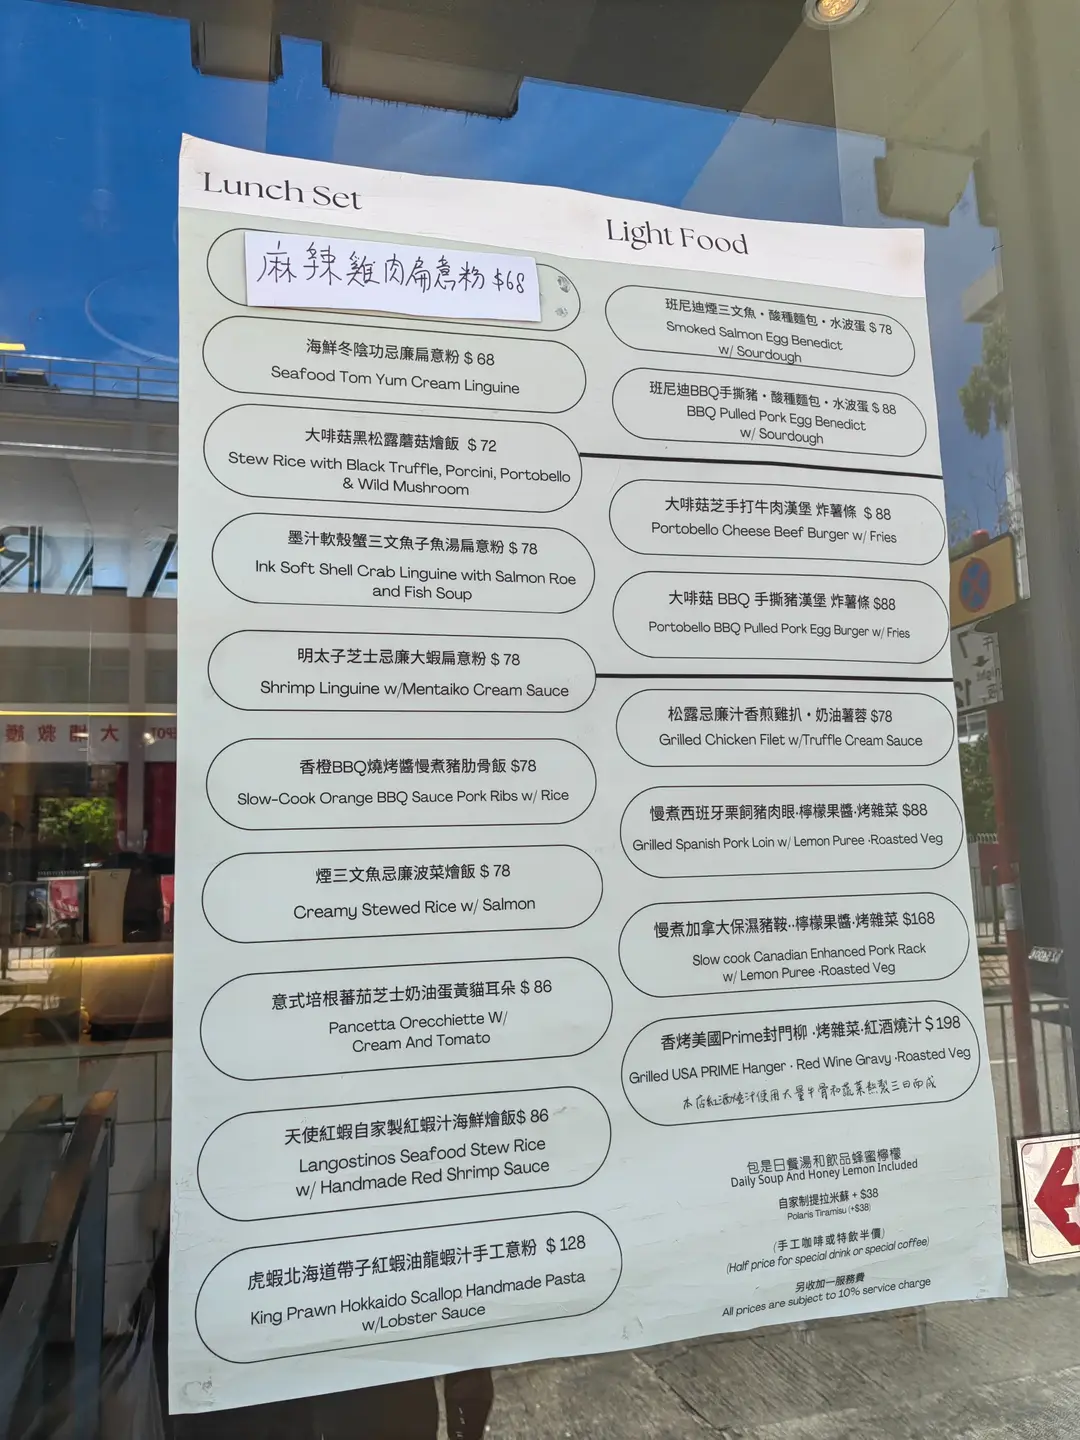 Lunch Set
麻辣雞肉扁意粉 $68
海鮮冬陰功忌廉扁意粉 $ 68
Seafood Tom Yum Cream Linguine
大啡菇黑松露蘑菇燴飯 $ 72
Stew Rice with Black Truffle, Porcini, Portobello
& Wild Mushroom
墨汁軟殼蟹三文魚子魚湯扁意粉 $ 78
Ink Soft Shell Crab Linguine with Salmon Roe
and Fish Soup
明太子芝士忌廉大蝦扁意粉 $ 78
Shrimp Linguine w/Mentaiko Cream Sauce
香橙BBQ燒烤醬慢煮豬肋骨飯 $78
Slow-Cook Orange BBQ Sauce Pork Ribs w/ Rice
煙三文魚忌廉波菜燴飯 $ 78
Creamy Stewed Rice w/ Salmon
意式培根蕃茄芝士奶油蛋黃貓耳朵 $ 86
Pancetta Orecchiette W/
Cream And Tomato
天使紅蝦自家製紅蝦汁海鮮燴飯$ 86
Langostinos Seafood Stew Rice
w/ Handmade Red Shrimp Sauce
虎蝦北海道帶子紅蝦油龍蝦汁手工意粉 $ 128
King Prawn Hokkaido Scallop Handmade Pasta
w/Lobster Sauce
Light Food
班尼迪煙三文魚・酸種麵包・水波蛋 $ 78
Smoked Salmon Egg Benedict
w/ Sourdough
班尼迪BBQ手撕豬・酸種麵包・水波蛋 $ 88
BBQ Pulled Pork Egg Benedict
w/ Sourdough
大啡菇芝手打牛肉漢堡 炸薯條 $ 88
Portobello Cheese Beef Burger w/ Fries
大啡菇 BBQ 手撕豬漢堡 炸薯條 $88
Portobello BBQ Pulled Pork Egg Burger w/ Fries
松露忌廉汁香煎雞扒・奶油薯蓉 $78
Grilled Chicken Filet w/Truffle Cream Sauce
慢煮西班牙栗飼豬肉眼·檸檬果醬·烤雜菜 $88
Grilled Spanish Pork Loin w/ Lemon Puree ·Roasted Veg
慢煮加拿大保濕豬鞍··檸檬果醬·烤雜菜 $168
Slow cook Canadian Enhanced Pork Rack
w/ Lemon Puree ·Roasted Veg
香烤美國Prime封門柳 ·烤雜菜·紅酒燒汁 $ 198
Grilled USA PRIME Hanger · Red Wine Gravy ·Roasted Veg
本店紅酒燒汁使用大量牛骨和蔬菜熬製三日而成
包是日餐湯和飲品蜂蜜檸檬
Daily Soup And Honey Lemon Included
自家制提拉米蘇 + $38
Polaris Tiramisu (+$38)
(手工咖啡或特飲半價)
(Half price for special drink or special coffee)
另收加一服務費
All prices are subject to 10% service charge